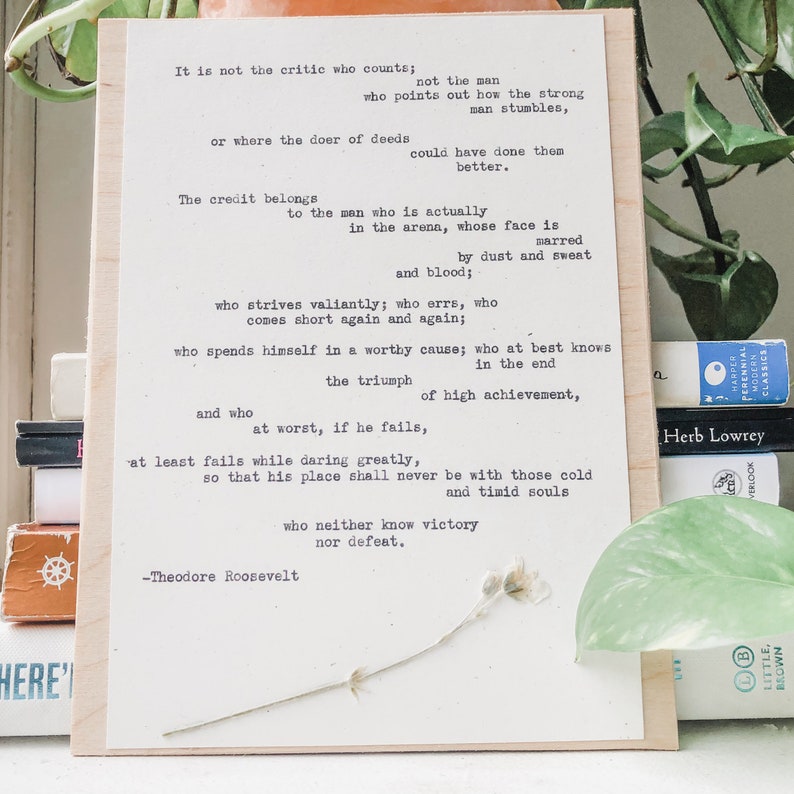 It is not the critic who counts;
not the man
who points out how the strong
man stumbles,
or where the doer of deeds
could have done them
better.
The credit belongs
to the man who is actually
in the arena, whose face is
marred
by dust and sweat
and blood;
who strives valiantly; who errs, who
comes short again and again;
who spends himself in a worthy cause; who at best knows
in the end
the triumph
of high achievement,
and who
at worst, if he fails,
at least fails while daring greatly,
so that his place shall never be with those cold
and timid souls
who neither know victory
nor defeat.
—Theodore Roosevelt
HARPER
PERENNIAL
MODERN
CLASSICS
Herb Lowrey
HERE'
LB
LITTLE,
BROWN